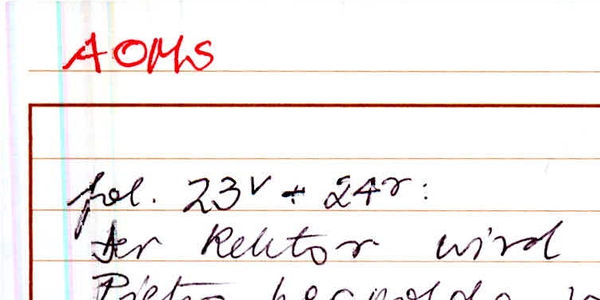 AOMS
fol. 23v + 24r:
Der Rektor wird
Pietro